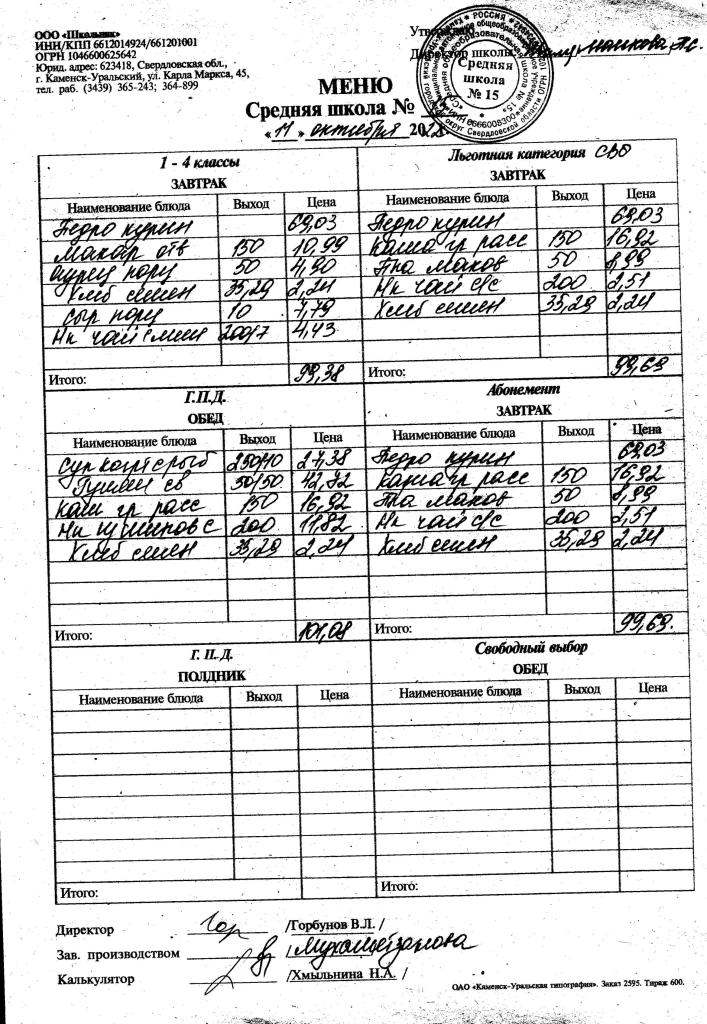 ООО «Школьник»
ИНН/КПП 6612014924/661201001
ОГРН 1046600625642
Юрид. адрес: 623418, Свердловская обл.,
г. Каменск-Уральский, ул. Карла Маркса, 45,
тел. раб. (3439) 365-243; 364-899
Утверждаю
Директор школы
РОССИЯ
Средняя
школа
№ 15
МЕНЮ
Средняя школа №
«11» октября 202
1 - 4 классы
ЗАВТРАК
Наименование блюда Выход Цена
Бедро курин 69,03
Макар отв 150 10,99
огурец порц 50 4,90
Хлеб пшен 35,29 2,24
Сыр порц 10 7,79
Нк чай с мин 200/7 4,43
Итого: 99,38
Льготная категория СВО
ЗАВТРАК
Наименование блюда Выход Цена
Бедро курин 69,03
Каша гр расс 150 16,92
Пка маков 50 8,99
Нк чай с/с 200 2,51
Хлеб пшен 35,29 2,24
Итого: 99,69
Г.П.Д.
ОБЕД
Наименование блюда Выход Цена
Суп карт с рыб 250/10 27,38
Гуляш св 50/50 42,72
Каш гр расс 150 16,92
Нк 200 11,82
Хлеб пшен 35,29 2,24
Итого: 101,08
Абонемент
ЗАВТРАК
Наименование блюда Выход Цена
Бедро курин 69,03
Каша гр расс 150 16,92
Пка маков 50 8,99
Нк чай с/с 200 2,51
Хлеб пшен 35,29 2,24
Итого: 99,69.
Г. П. Д.
ПОЛДНИК
Наименование блюда Выход Цена
Итого:
Свободный выбор
ОБЕД
Наименование блюда Выход Цена
Итого:
Директор /Горбунов В.Л. /
Зав. производством /
Калькулятор /Хмыльнина Н.А. /
ОАО «Каменск-Уральская типография». Заказ 2595. Тираж 600.